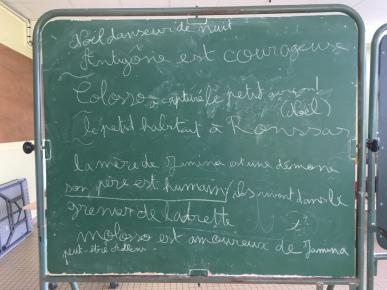 Noël danseur de nuit
Antigone est courageuse
Colosso a capturé le petit
(Noël)
le petit habitait à Ronssar
la mère de Jamina est une démone
son père est humain, ils vivent dans le
grenier de
Molosso est amoureux de Jamina
peut-être